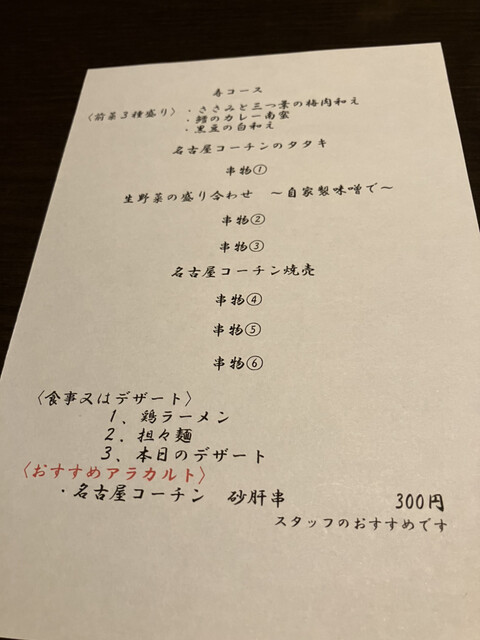 寿コース
〈前菜３種盛り〉・ささみと三つ葉の梅肉和え
・鱈のカレー南蛮
・黒豆の白和え
名古屋コーチンのタタキ
串物①
生野菜の盛り合わせ　～自家製味噌で～
串物②
串物③
名古屋コーチン焼売
串物④
串物⑤
串物⑥
〈食事又はデザート〉
１、鶏ラーメン
２、担々麺
３、本日のデザート
〈おすすめアラカルト〉
・名古屋コーチン　砂肝串　300円
スタッフのおすすめです